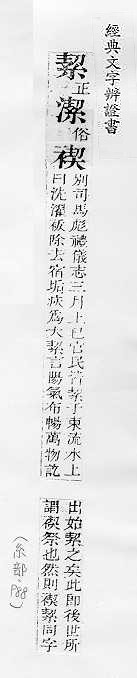 經典文字辨證書
絜正潔俗禊別司馬彪禮儀志三月上巳官民皆絜于東流水上
曰洗濯祓除去宿垢疢爲大絜言陽氣布暢萬物訖
出始絜之矣此即後世所
謂禊祭也然則禊絜同字
(糸部·P88)